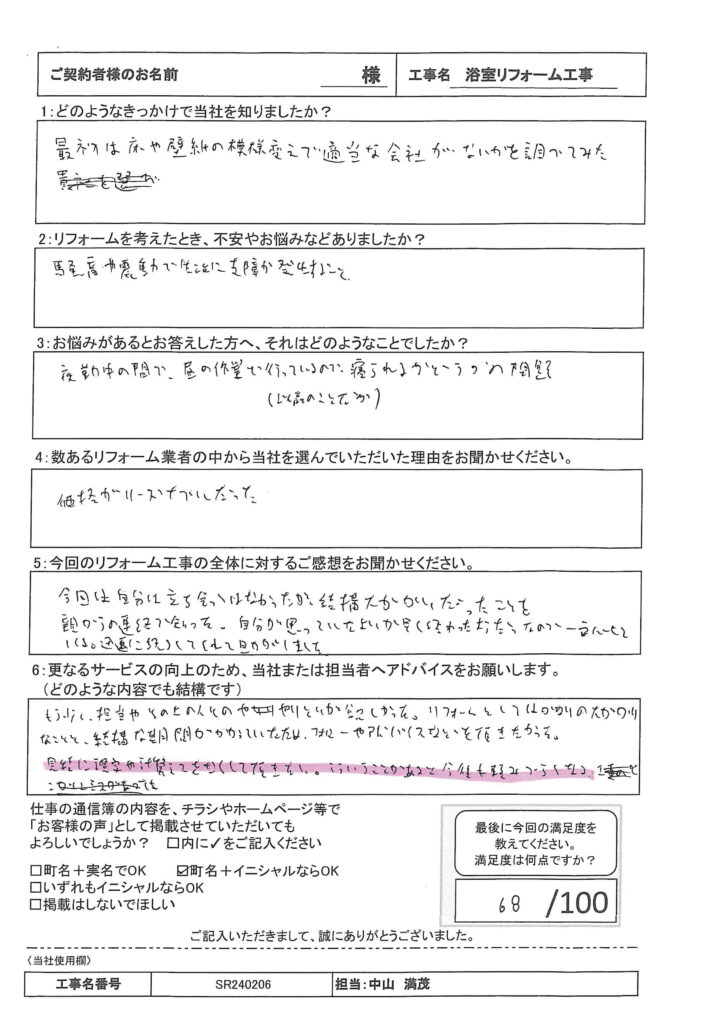 ご契約者様のお名前 様 工事名 浴室リフォーム工事
1：どのようなきっかけで当社を知りましたか？
最初は床や壁紙の模様変えで適当な会社がないかを調べてみた
2：リフォームを考えたとき、不安やお悩みなどありましたか？
騒音や震動で生活に支障が発生すること
3：お悩みがあるとお答えした方へ、それはどのようなことでしたか？
夜勤中の間で、昼の作業を行っているので、寝られるかというの問題
(以前のことだが)
4：数あるリフォーム業者の中から当社を選んでいただいた理由をお聞かせください。
価格がリーズナブルだった
5：今回のリフォーム工事の全体に対するご感想をお聞かせください。
今回は自分は立ち会ってはなかったが、結構大がかりだったことを
親からの連絡で知った。自分が思っていたよりか早く終わった
迅速に
6：更なるサービスの向上のため、当社または担当者へアドバイスをお願いします。
（どのような内容でも結構です）
もう少し、担当やその上の人とのやりとりが欲しかった。リフォームとしては
なことと、結構な期間がかかっていたため、フォローやアドバイスなどを頂きたかった。
仕事の通信簿の内容を、チラシやホームページ等で
「お客様の声」として掲載させていただいても
よろしいでしょうか？ □内に✓をご記入ください
□町名＋実名でOK ☑町名＋イニシャルならOK
□いずれもイニシャルならOK
□掲載はしないでほしい
最後に今回の満足度を
教えてください。
満足度は何点ですか？
68 /100
ご記入いただきまして、誠にありがとうございました。
〈当社使用欄〉
工事名番号 SR240206 担当：中山 満茂